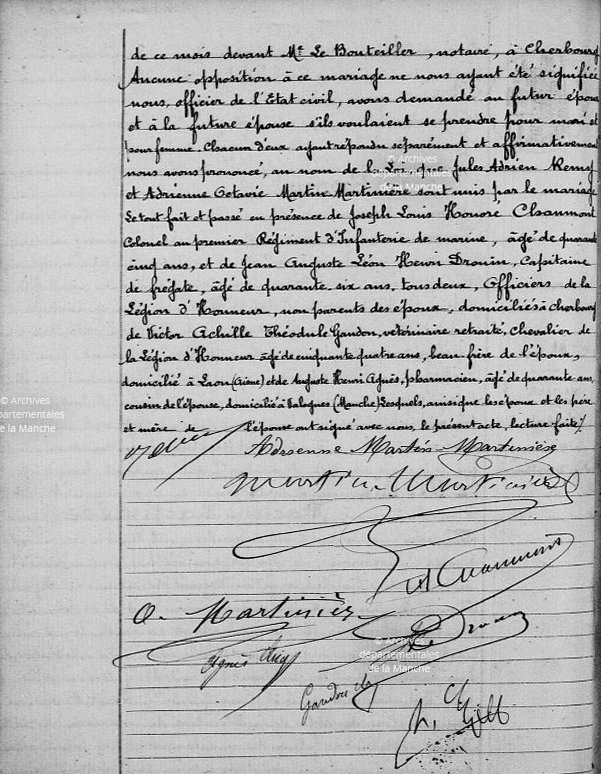 de ce mois devant Me Le Bouteiller, notaire, à Cherbourg
Aucune opposition à ce mariage ne nous ayant été signifiée
nous, officier de l'Etat civil, avons demandé au futur époux
et à la future épouse s'ils voulaient se prendre pour mari et
pour femme. Chacun d'eux ayant répondu séparément et affirmativement
nous avons prononcé, au nom de la Loi, que Jules Adrien Remy
et Adrienne Octavie Martin Martinière sont unis par le mariage
Le tout fait et passé en présence de Joseph Louis Honoré Chaumont
Colonel au premier Régiment d'Infanterie de marine, âgé de quarante
cinq ans, et de Jean Auguste Léon Henri Drouin, Capitaine
de frégate, âgé de quarante-six ans, tous deux, Officiers de la
Légion d'Honneur, non parents des époux, domiciliés à Cherbourg
de Victor Achille Théodule Gaudon, vétérinaire retraité, Chevalier de
la Légion d'Honneur âgé de cinquante quatre ans, beau frère de l'époux,
domicilié à Laon (Aisne) et de Auguste Henri Agnès, pharmacien, âgé de quarante ans,
cousin de l'épouse, domicilié à Valognes (Manche) Lesquels, ainsi que les époux et les père
et mère de l'épouse ont signé avec nous, le présent acte, lecture faite/.
Adrienne Martin Martinière
Martin Martinière
Chaumont
O. Martinière
Drouin
Agnès
Gaudon
© Archives
départementales
de la Manche
© Archives
départementales
de la Manche
© Archives
départementales
de la Manche